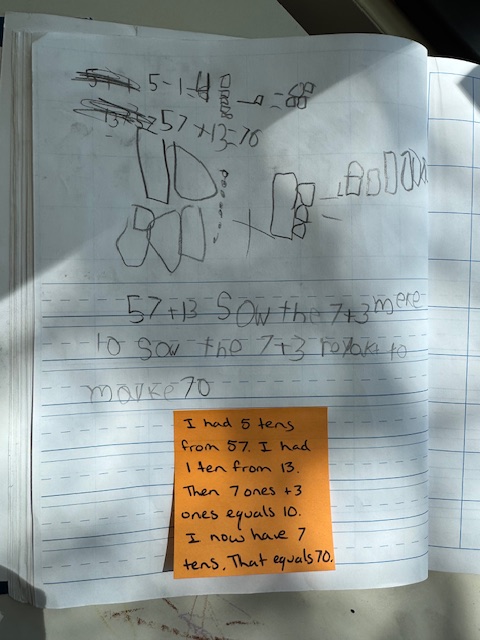 5-1=4
57+13=70
57+13 Sow the 7+3 mere
to sow the 7+3 to
mayke 70
I had 5 tens
from 57. I had
1 ten from 13.
Then 7 ones +3
ones equals 10.
I now have 7
tens. That equals 70.